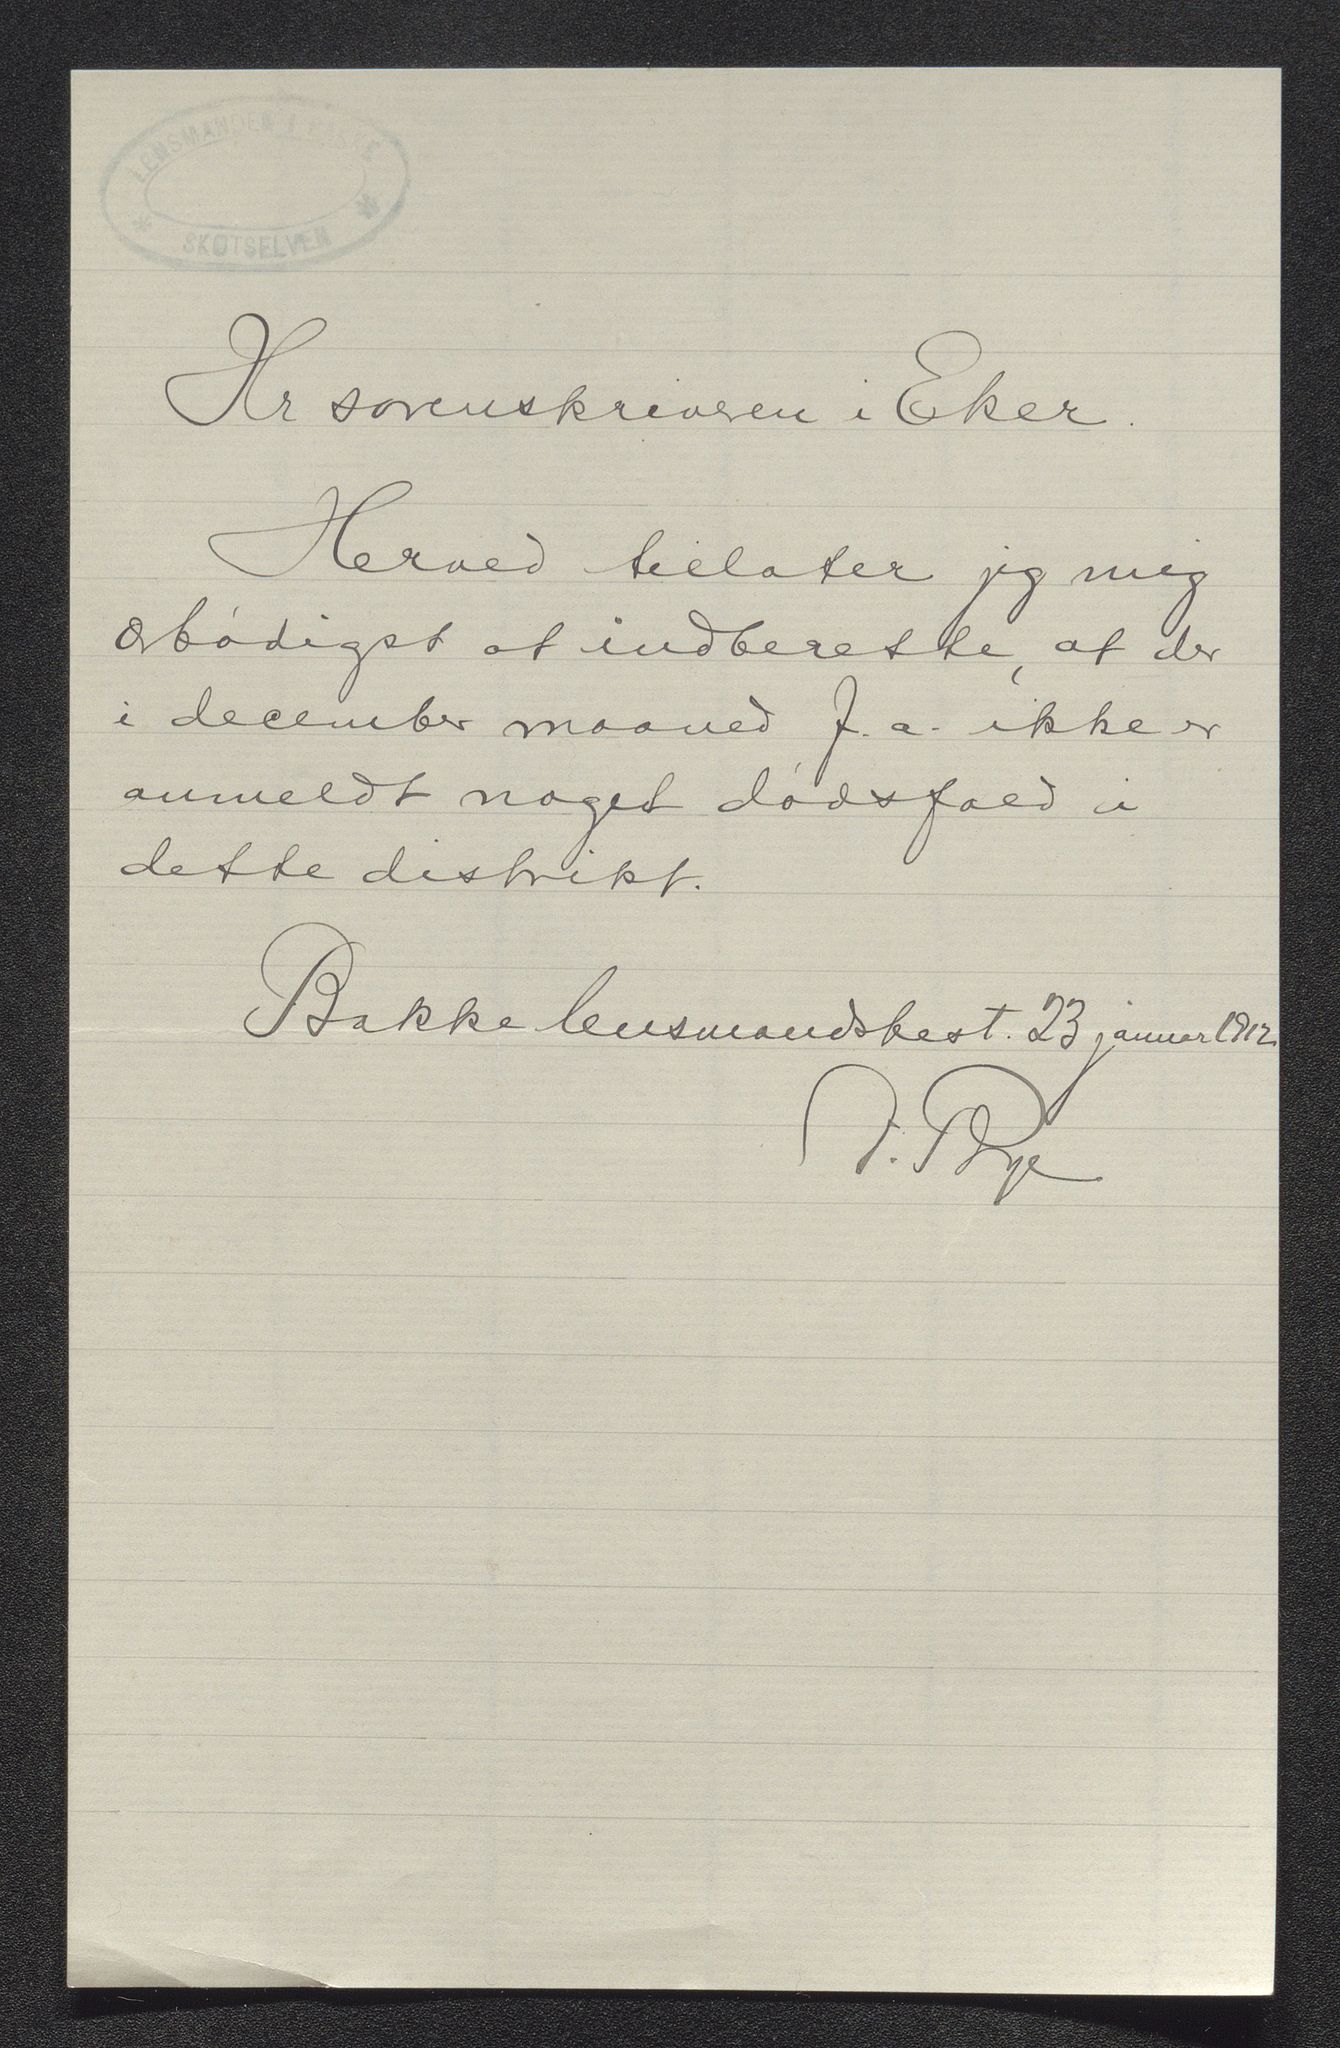 LENSMANDEN I BAKKE
SKOTSELVEN
Hr sorenskriveren i Eker.
Herved tillater jeg mig
ærbødigst at indberette, at der
i december maaned f. a. ikke er
anmeldt noget dødsfald i
dette distrikt.
Bakke lensmandsbest. 23 januar 1912
J. Rye